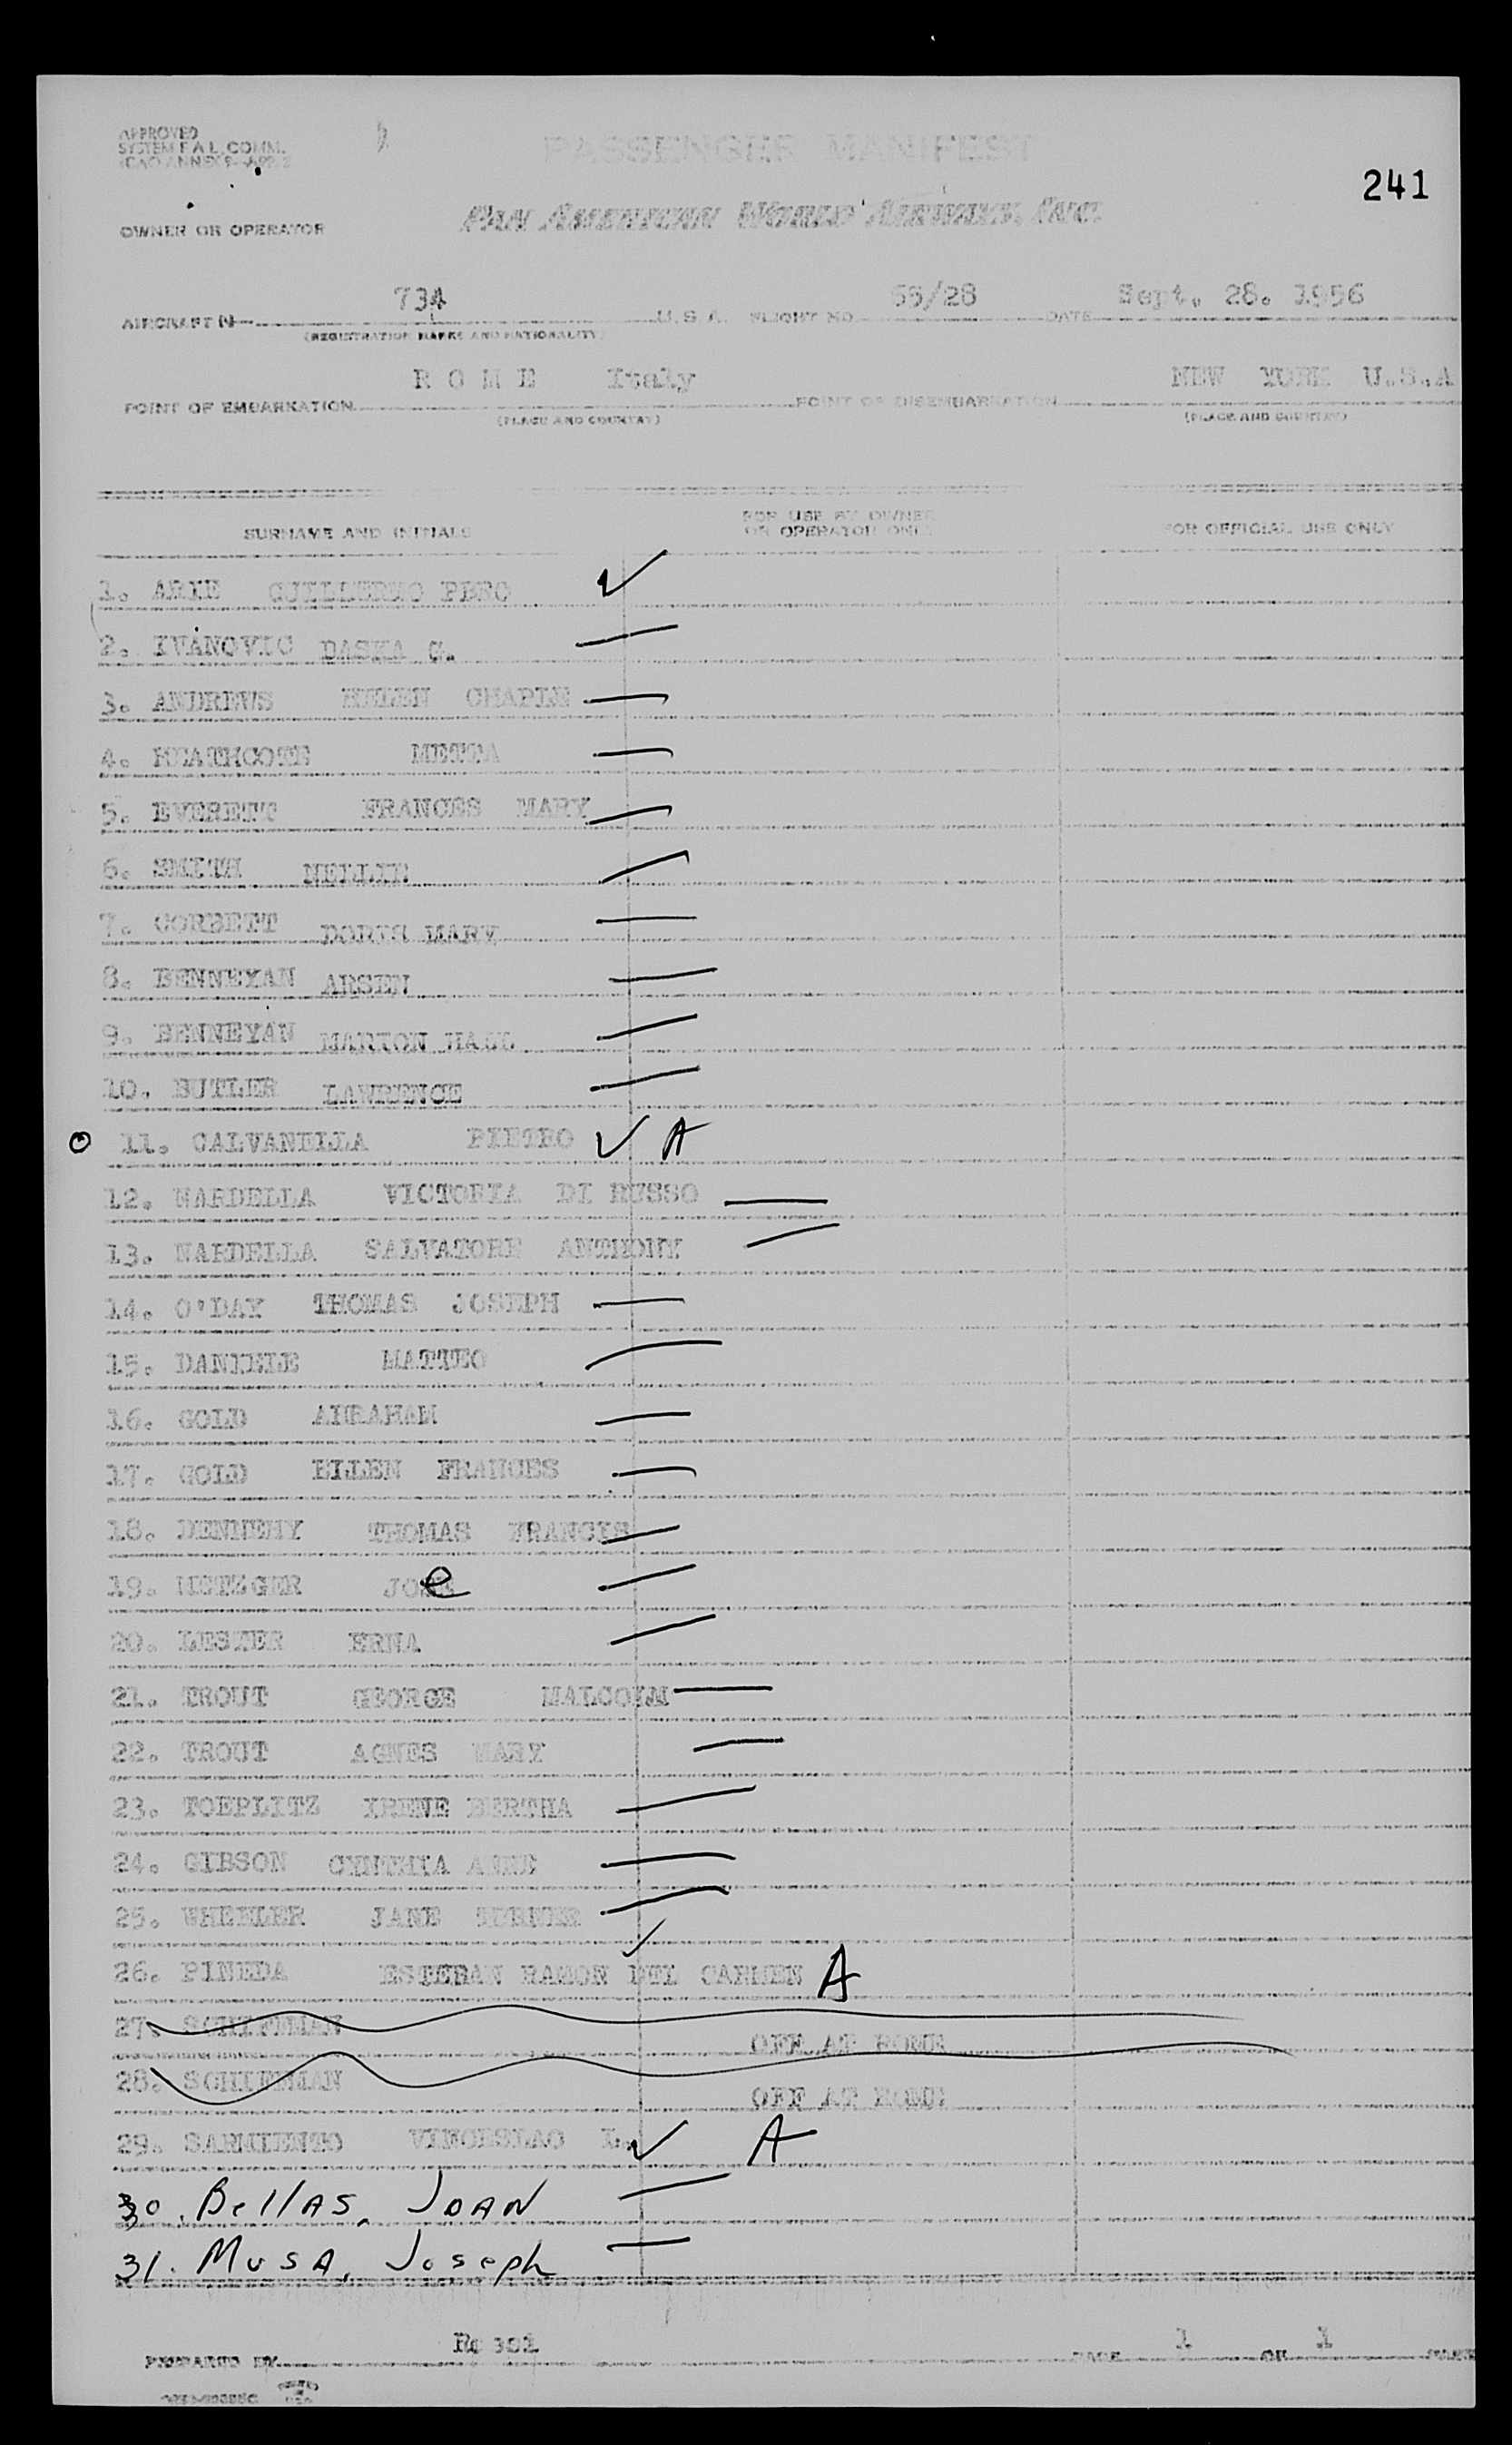 APPROVED
SYSTEM F.A.L. COMM.
PASSENGER MANIFEST
241
OWNER OR OPERATOR
PAN AMERICAN WORLD AIRWAYS, INC.
734 /28 Sept. 28. 1956
AIRCRAFT N U.S.A. FLIGHT NO. DATE
(REGISTRATION MARKS AND NATIONALITY)
R O M E Italy NEW YORK U.S.A
POINT OF EMBARKATION POINT OF DISEMBARKATION
(PLACE AND COUNTRY) (PLACE AND COUNTRY)
SURNAME AND INITIALS FOR USE BY OWNER OR OPERATOR ONLY FOR OFFICIAL USE ONLY
1. ARIE GUILLERMO ✓
2. IVANOVIC DASKA G.
3. ANDREWS HELEN CHAPIN
4. HEATHCOTE METTA
5. EVERETT FRANCES MARY
6. SMITH NELLIE
7. CORBETT DORIS MARY
8. BENNEYAN ARSEN
9. BENNEYAN MARION
10. BUTLER LAWRENCE
11. CALVANELLA PIETRO ✓ A
12. NARDELLA VICTORIA DI RUSSO
13. NARDELLA SALVATORE ANTHONY
14. O'DAY THOMAS JOSEPH
15. DANIELE MATTEO
16. GOLD ABRAHAM
17. GOLD ELLEN FRANCES
18. DENNEHY THOMAS FRANCIS
19. METZGER JOe
20. LESTER ERNA
21. TROUT GEORGE MALCOLM
22. TROUT AGNES MARY
23. TOEPLITZ IRENE BERTHA
24. GIBSON CYNTHIA ANNE
25. WHEELER JANE
26. PINEDA ESTEBAN RAMON DEL CARMEN ✓ A
27. SCHIFFMAN OFF AT ROME
28. SCHIFFMAN OFF AT ROME
29. SARMIENTO L. ✓ A
30. BellAS, JOAN
31. MUSA, Joseph
PREPARED BY PAGE 1 OF 1